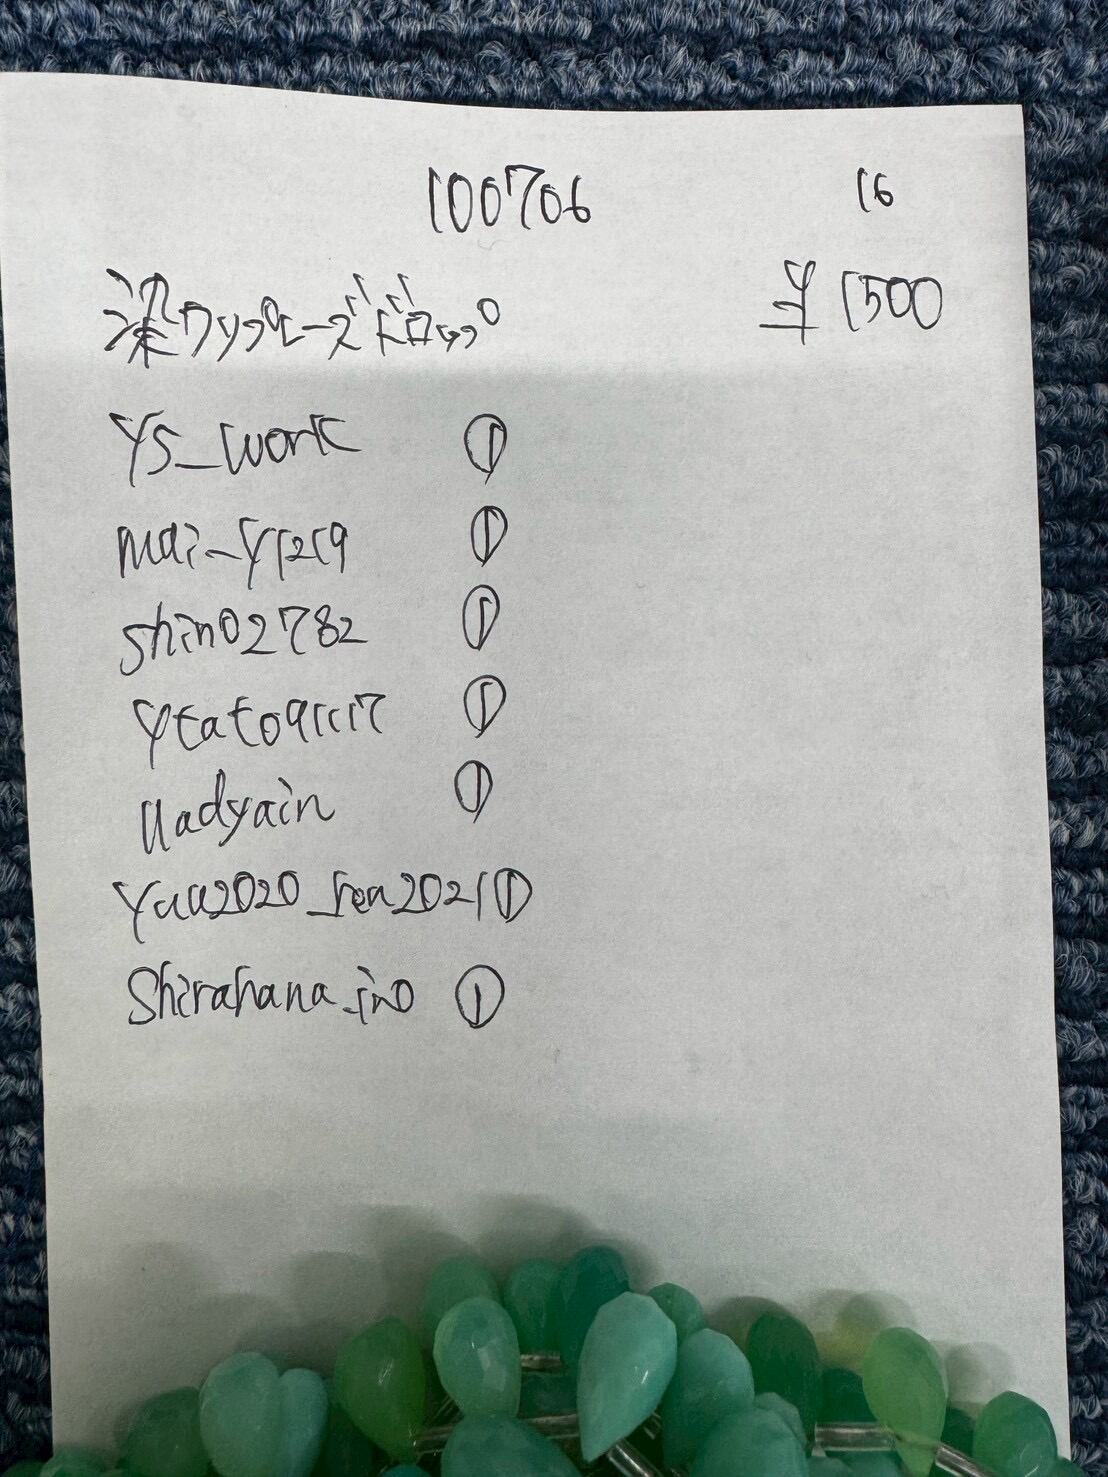 100706 16
染クリソプレーズドロップ ¥1500
YS_work ①
mai_y1219 ①
shino2782 ①
ytato91117 ①
uadyain ①
Yuu2020_ren2021 ①
Shirahana_ino ①